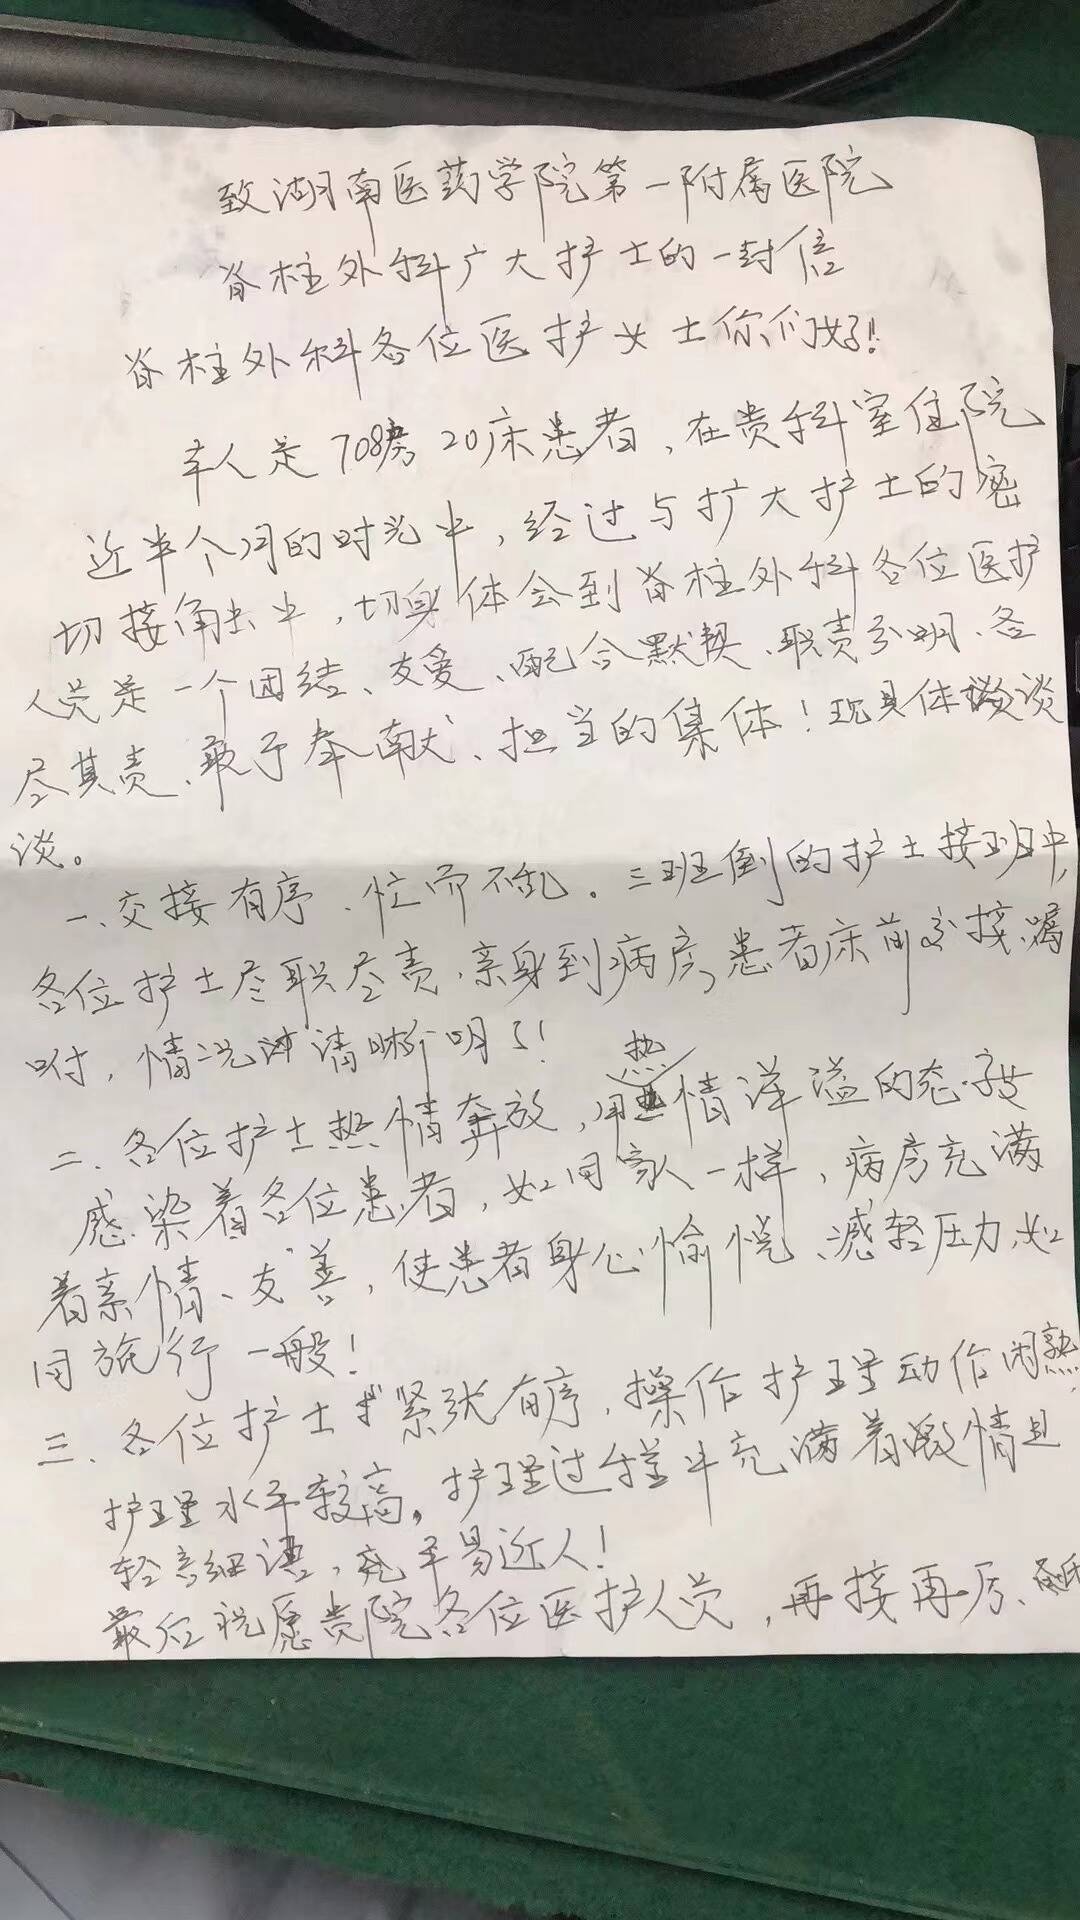 致湖南医药学院第一附属医院
脊柱外科广大护士的一封信
脊柱外科各位医护女士你们好!
本人是708房20床患者,在贵科室住院
近半个月的时光中,经过与扩大护士的密
切接触中,切身体会到脊柱外科各位医护
人员是一个团结、友爱、配合默契、职责分明、各
尽其责、敢于奉献、担当的集体!现具体谈
谈。
一、交接有序、忙而不乱。三班倒的护士接班中,
各位护士尽职尽责,亲身到病房,患者床前交接、嘱
咐,情况清晰明了!
二、各位护士热情奔放,用热情洋溢的态度
感染着各位患者,如同家人一样,病房充满
着亲情、友善,使患者身心愉悦、减轻压力,如
同旅行一般!
三、各位护士紧张有序,操作护理动作闲熟,
护理水平较高,护理过程中充满着激情且
轻言细语,平易近人!
最后祝愿贵院各位医护人员,再接再厉、